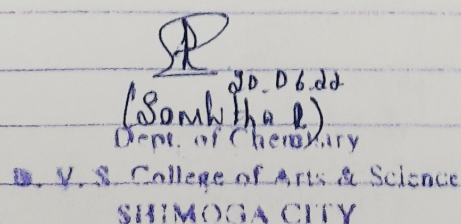 20.06.22
(Somhitha R)
Dept. of Chemistry
D. V. S College of Arts & Science
SHIMOGA CITY